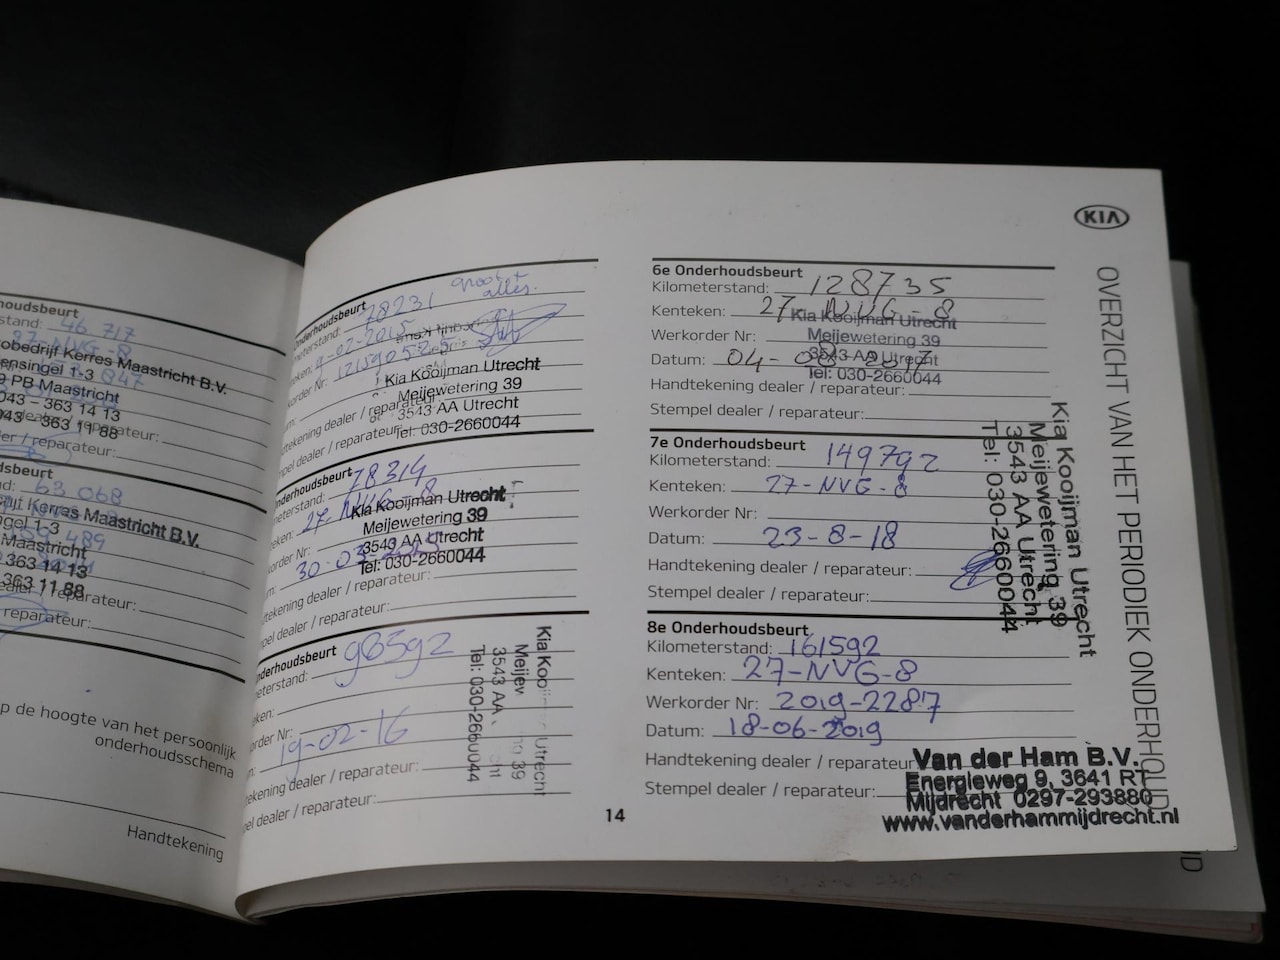 houdsbeurt
stand: 46.717
27-NVG-8
obedrijf Kerres Maastricht B.V.
ensingel 1-3
847
9 PB Maastricht
043 - 363 14 13
043 - 363 11 88
reparateur:
dsbeurt
nd: 63 068
Kerres Maastricht B.V.
ngel 1-3
489
Maastricht
363 14 13
363 11 88
reparateur:
p de hoogte van het persoonlijk
onderhoudsschema
Handtekening
Onderhoudsbeurt
meterstand: 78231
eken: 9-02-2015
korder Nr:
Kia Kooijman Utrecht
Meijewetering 39
3543 AA Utrecht
Tel: 030-2660044
dtekening dealer / reparateur:
pel dealer / reparateur:
nderhoudsbeurt
meterstand: 78314
eken: 27-NVG-8
Kia Kooijman Utrecht
Meijewetering 39
korder Nr:
3543 AA Utrecht
Tel: 030-2660044
tekening dealer / reparateur:
pel dealer / reparateur:
nderhoudsbeurt
meterstand: 96392
eken:
korder Nr:
19-02-16
tekening dealer / reparateur:
pel dealer / reparateur:
Utrecht
3543 AA
Tel: 030-2660044
14
KIA
OVERZICHT VAN HET PERIODIEK ONDERHOUD
6e Onderhoudsbeurt
Kilometerstand: 128735
Kenteken: 27-NVG-8
Kia Kooijman Utrecht
Werkorder Nr:
Meijewetering 39
3543 AA Utrecht
Datum: 04-08-2017
Tel: 030-2660044
Handtekening dealer / reparateur:
Stempel dealer / reparateur:
7e Onderhoudsbeurt
Kilometerstand: 149792
Kenteken: 27-NVG-8
Werkorder Nr:
Datum: 23-8-18
Handtekening dealer / reparateur:
Stempel dealer / reparateur:
Kia Kooijman Utrecht
Meijewetering 39
3543 AA Utrecht
Tel: 030-2660044
8e Onderhoudsbeurt
Kilometerstand: 161592
Kenteken: 27-NVG-8
Werkorder Nr: 2019-2287
Datum: 18-06-2019
Handtekening dealer / reparateur:
Stempel dealer / reparateur:
Van der Ham B.V.
Energieweg 9, 3641 RT
Mijdrecht 0297-293880
www.vanderhammijdrecht.nl